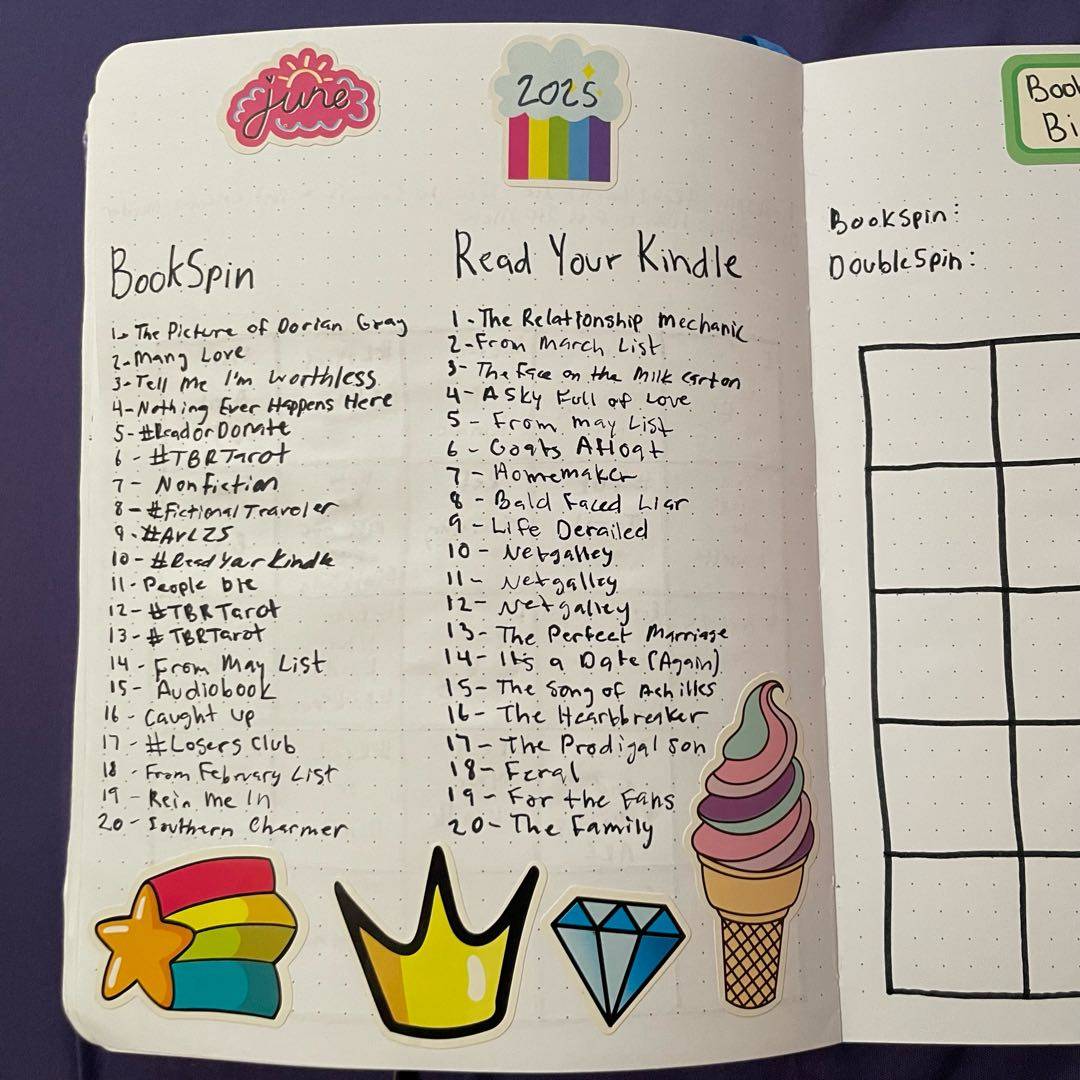 june
2025
BookSpin
1- The Picture of Dorian Gray
2- Mang Love
3- Tell Me I'm Worthless
4- Nothing Ever Happens Here
5- #ReadorDonate
6 - #TBRTarot
7 - Nonfiction
8 - #FictionalTraveler
9 - #ARC25
10 - #ReadYourKindle
11- People Die
12- #TBRTarot
13- #TBRTarot
14 - From May List
15 - Audiobook
16 - Caught Up
17 - #LosersClub
18 - From February List
19 - Rein Me In
20 - Southern Charmer
Read Your Kindle
1 - The Relationship Mechanic
2- From March List
3- The Face on the Milk Carton
4- A Sky Full of Love
5 - From May List
6 - Goats Afloat
7 - Homemaker
8 - Bald Faced Liar
9 - Life Derailed
10 - Netgalley
11 - Netgalley
12 - Netgalley
13- The Perfect Marriage
14- It's a Date (Again)
15- The Song of Achilles
16- The Heartbreaker
17- The Prodigal Son
18- Feral
19 - For the Fans
20- The Family
Book
Bi
BookSpin:
DoubleSpin: